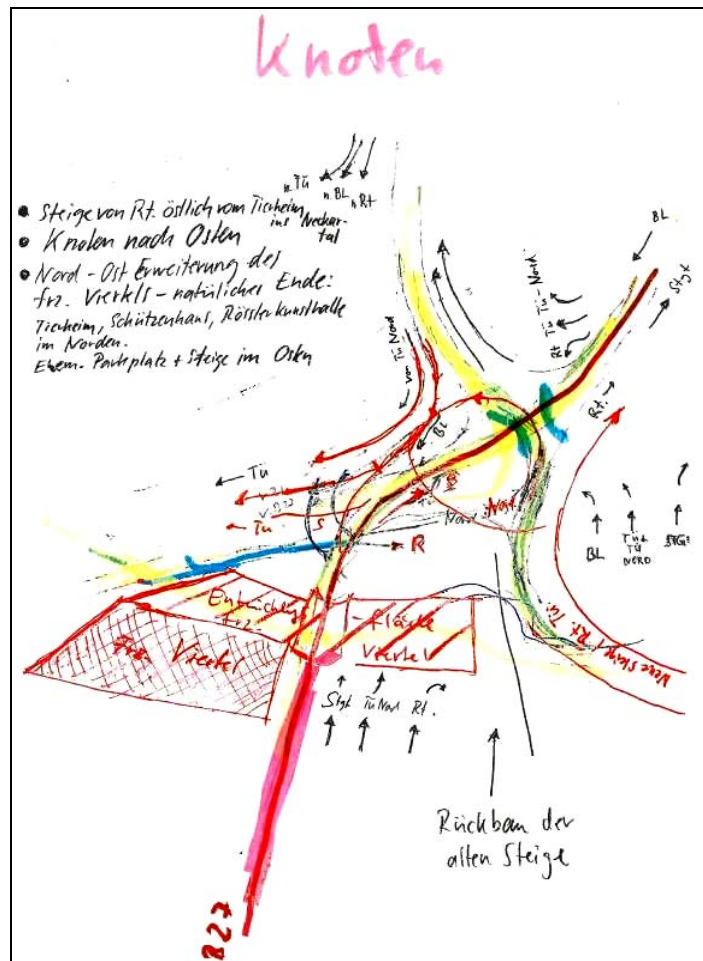 Knoten
n. Tü
n. BL
n. Rt
• Steige von Rt. östlich vom Tierheim ins Neckar-
tal
• Knoten nach Osten
• Nord-Ost Erweiterung des
frz. Viertels - natürliches Ende:
Tierheim, Schützenhaus, Rössler Kunsthalle
im Norden.
Ehem. Parkplatz + Steige im Osten
BL
Stgt
Tü-Nord
Tü
Rt
von Tü Nord
Rt.
BL
Tü
Tü
S
Nord
R
BL
Tü +
TÜ
NORD
STGT
Entwicklungs
-fläche
frz.
Viertel
Frz. Viertel
Neue Steige Rt. Tü.
Stgt
Tü Nord
Rt.
Rückbau der
alten Steige
B27